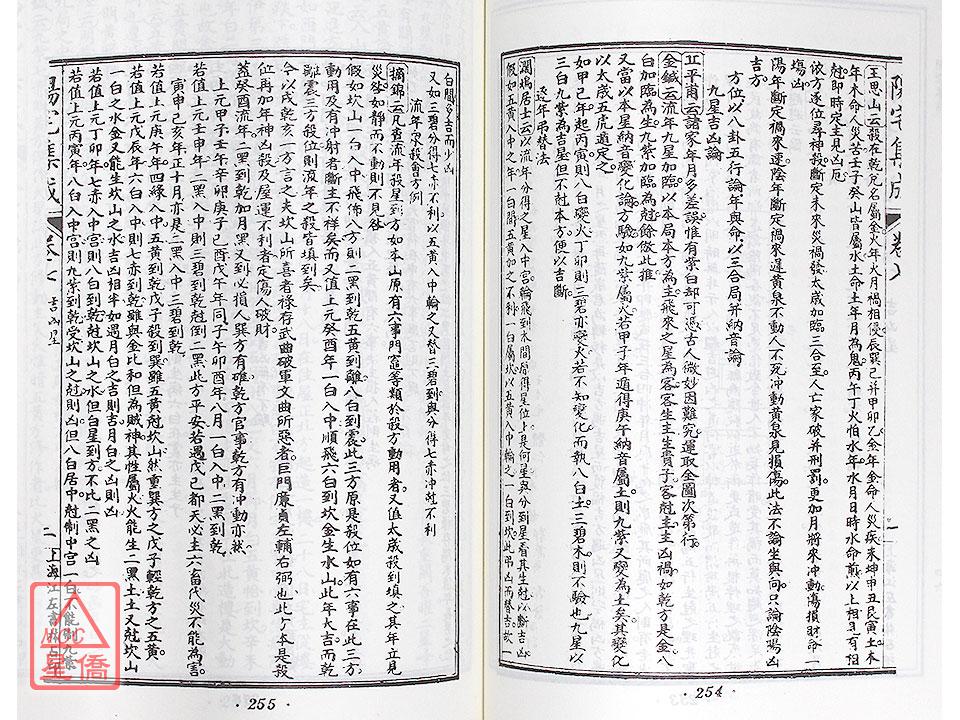 王思山云殺在乾兌名屬金火年火月禍相侵辰巽巳并甲卯乙金年金命人災疾來坤申丑艮寅土木
年木命人災苦壬子癸山皆屬水土命土年月為鬼丙午丁火怕水年水月日時水命煎以上相主有相
尅即時定主見凶厄
依方逐位尋神殺斷定未來災禍發太歲加臨三合至人亡家破并刑罰更加月將來冲動傷損財命一
場凶
陽年斷定禍來速陰年斷定禍來遲黃泉不動人不死冲動黃泉見損傷此法不論坐與向只論陰陽凶
吉方
九星吉凶論
方位以八卦五行論年與命以三合局并納音論
諸家年月多差誤惟有紫白却可憑古人微妙因難究遂取金圖次第行
金鍼云流年九星加臨以本局本方為主飛來之星為客客生主生貴子客尅主主凶禍如乾方是金八
白加臨為生九紫加臨為尅餘倣此推
又當以本星納音變化論方驗如九紫屬火若甲子年遁得庚午納音屬土則九紫又變為土矣其變化
以太歲五虎遁定之
如甲己年起丙寅則八白變火丁卯則三碧亦變火若不知變化而執八白土三碧木則不驗也九星以
三白九紫為吉星但不尅本方便以吉斷
逐年弔替法
居士云以流年分得之星入中宮輪飛到水間層得星位上是何星與分到星看其生尅以斷吉凶
假如五黃入中之年一白間五黃加之不利一白屬坎以五黃入中輪之一白到坎此弔凶而替吉故一
254
白間為吉而少凶
又如三碧分得七赤不利以五黃入中輪之又替二碧到與分得七赤冲尅不利
流年尋殺會方例
摘錦云凡查流年殺星到方如本山原有六事門竈等類於殺方動用者又值太歲殺到填之其年立見
災發如靜而不動則不見咎
假如坎山一白入中飛佈八方則二黑到乾五黃到離八白到震此三方原是殺位如有六事在此三方
動用及有冲射者斷主不祥矣而又值上元癸酉年一白入中順飛六白到坎金生水山此年大吉而乾
離震三方殺位則流年之殺皆填到矣
今以戌乾亥一方言之夫坎山所喜者祿存武曲破軍文曲所惡者巨門廉貞左輔右弼也此個本是殺
位再加年神凶殺及屋運不利者定傷人破財
蓋癸酉流年二黑到乾加月黑又到必損人巽方有碓乾方官事乾方有冲動亦然
上元甲子壬午辛卯庚子己酉戊午年同子午卯酉年八月一白入中二黑到乾
若值上元壬申年二黑入中則三碧到乾尅倒二黑此方平安若遇戊己都天必主六畜代災不能為害
寅申巳亥年正十月亦是二黑入中三碧到乾
若值上元庚午年四綠入中五黃到乾戊子殺到巽雖五黃尅坎山然重巽方之戊子輕乾方之五黃
若值上元戊辰年六白入中則七赤到乾雖與金比和但為賊神其性屬火能生二黑土土又尅坎山
一白之水金又能生坎山之水吉凶相半如遇月白之吉則吉月白之凶則凶
若值上元丁卯年七赤入中宮則八白到乾尅坎山之水但白星到方不比二黑之凶
若值上元丙寅年八白入中宮則九紫到乾受坎山之尅則凶但八白居中尅制中宮一白不能制九紫
吉凶星
二
上海江左書林石印
255